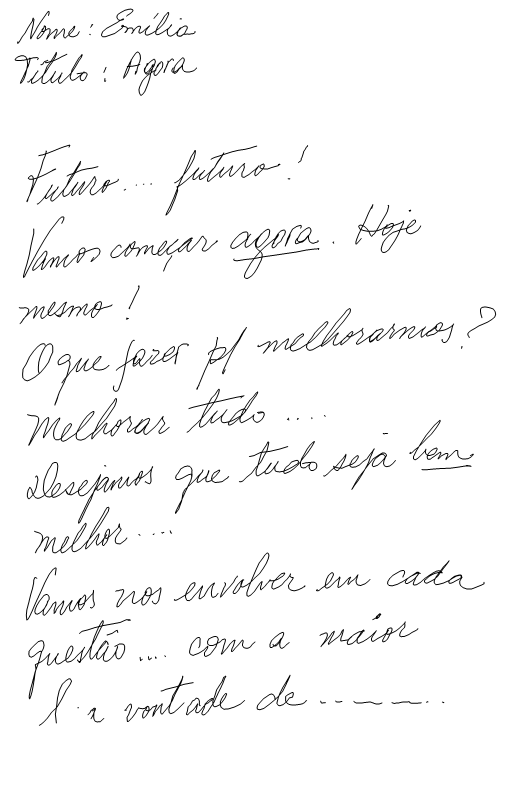 Nome : Emília
Título : Agora
Futuro.... futuro!
Vamos começar agora. Hoje
mesmo!
O que fazer p/ melhorarmos?
Melhorar tudo ....
Desejamos que tudo seja bem
melhor....
Vamos nos envolver em cada
questão.... com a maior
vontade de -------..